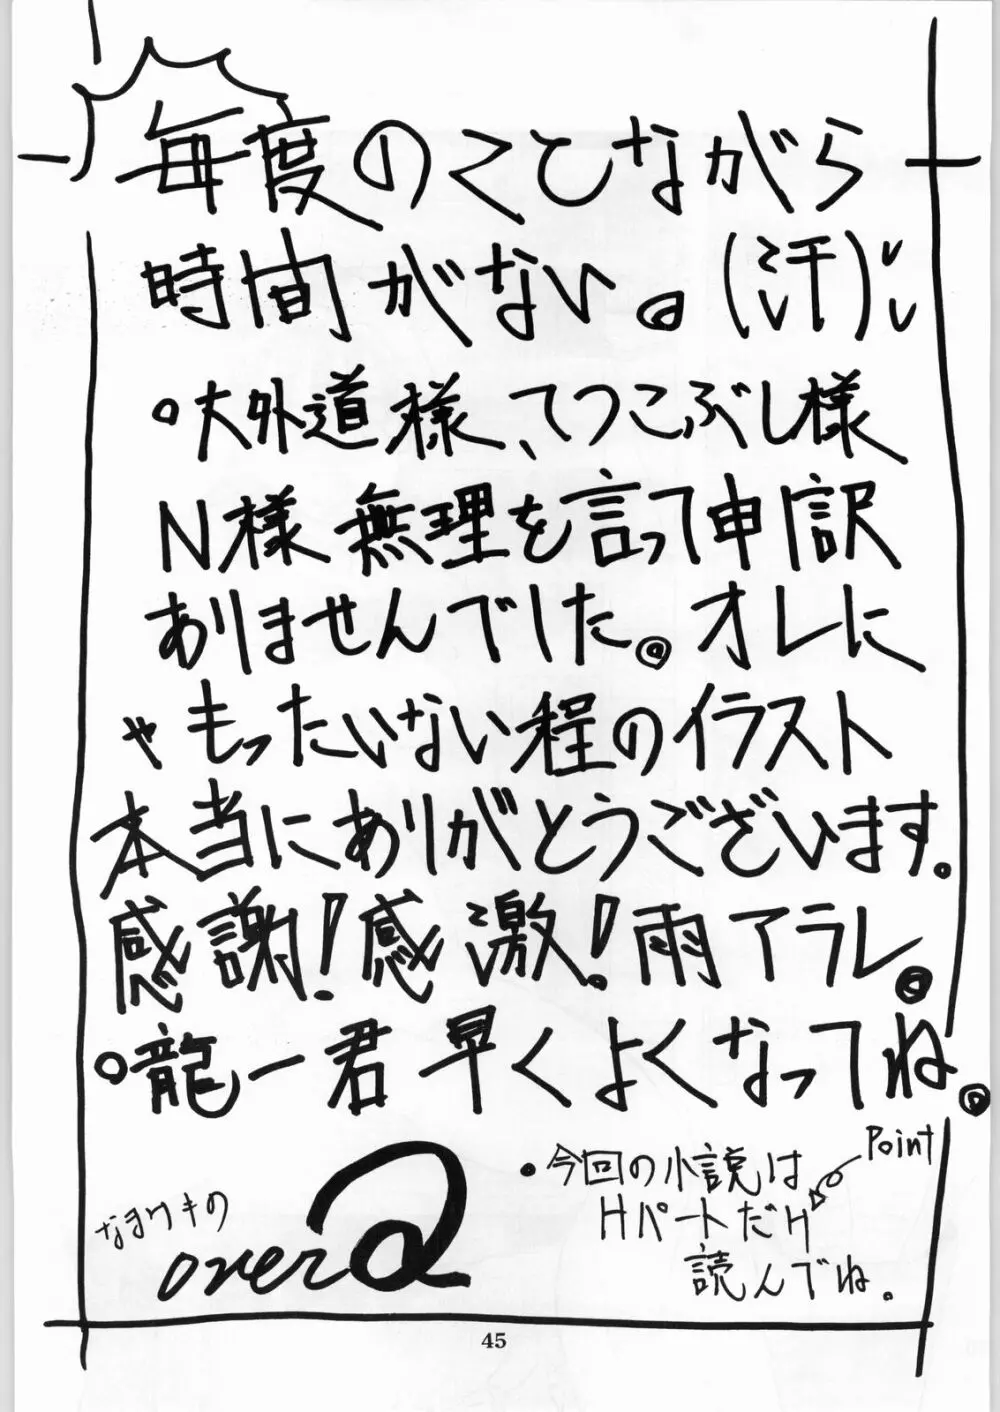 毎度のことながら
時間がない。(汗)
大外道様、てつこぶし様
N様 無理を言って申し訳
ありませんでした。オレに
ゃもったいない程のイラスト
本当にありがとうございます。
感謝!感激!雨アラレ。
龍一君 早くよくなってね。
なまいきの
over Q
Point
・今回の小説は
Hパートだけ
読んでね。
45